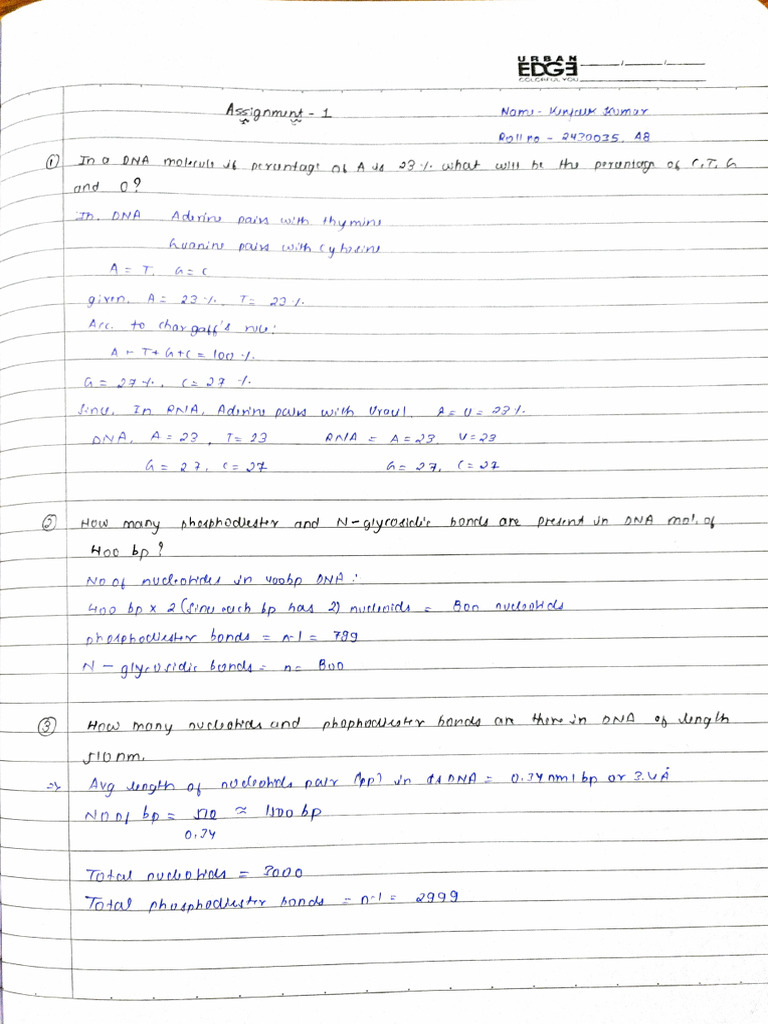 URBAN
EDGE
COLORFUL YOU
Assignment - 1
Name - Kinjalk Kumar
Roll no - 2430035, A8
① In a DNA molecule if percentage of A is 23% what will be the percentage of C, T, G
and O?
In DNA Aderine pairs with thymine
Guanine pairs with Cytosine
A = T, G = C
given, A = 23 %, T = 23 %
Acc. to chargaff's rule:
A + T + G + C = 100 %.
G = 27 %, C = 27 %
Since, In RNA, Aderine pairs with Uracil, A = U = 23%.
DNA, A = 23, T = 23 RNA = A = 23, U = 23
G = 27, C = 27 G = 27, C = 27
② How many phosphodiester and N-glycosidic bonds are present in DNA mol. of
400 bp?
No of nucleotides in 400bp DNA:
400 bp x 2 (since each bp has 2) = 800
phosphodiester bonds = n-1 = 799
N - glycosidic bonds = n = 800
③ How many and bonds are there in DNA of length
510 nm.
=> Avg length of pair (bp) in dsDNA = 0.34 nm / bp or 3.4 Å
No of bp = 510 ≈ 1500 bp
0.34
Total = 3000
Total phosphodiester bonds = n-1 = 2999